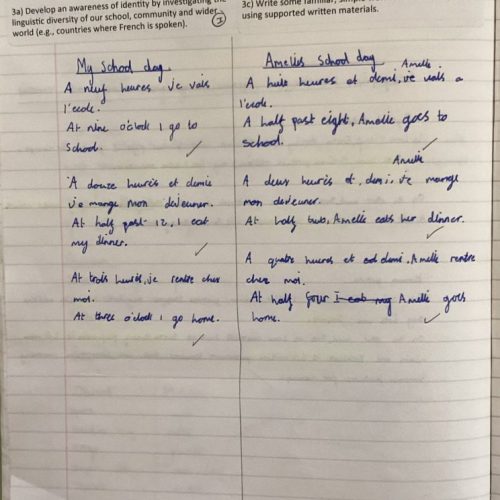 3a) Develop an awareness of identity by investigating the
linguistic diversity of our school, community and wider
world (e.g., countries where French is spoken).
3c) Write some familiar, simple
using supported written materials.
My school day
A neuf heures je vais
l'ecole.
At nine o'clock I go to
School.
A douze heures et demie
je mange mon dejeuner.
At half past 12, I eat
my dinner.
At trois heures, je rentre cher
moi.
At three o'clock I go home.
Amelies school day
Amelie
A huit heures et demi, je vais a
l'ecole.
A half past eight, Amelie goes to
school.
Amelie
A deux heures et, demi, je mange
mon dejeuner.
At half two, Amelie eats her dinner.
A quatre heures et demi, Amelie rentre
cher moi.
At half four I eat my Amelie goes
home.